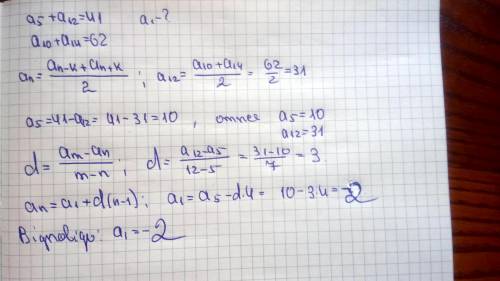 a₅ + a₁₂ = 41   a₁ - ?
a₁₀ + a₁₄ = 62
aₙ = (aₙ₋ₖ + aₙ₊ₖ)/2 ; a₁₂ = (a₁₀ + a₁₄)/2 = 62/2 = 31
a₅ = 41 - a₁₂ = 41 - 31 = 10 , отже a₅ = 10
a₁₂ = 31
d = (aₘ - aₙ)/(m - n) ; d = (a₁₂ - a₅)/(12 - 5) = (31 - 10)/7 = 3
aₙ = a₁ + d(n-1) ; a₁ = a₅ - d·4 = 10 - 3·4 = -2
Відповідь: a₁ = -2